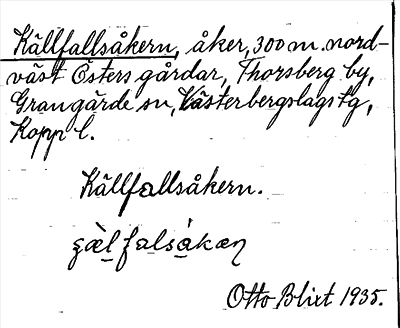 Källfallsåkern, åker, 300 m. nord-
väst Östers gårdar, Thorsberg by,
Grangärde sn, Västerbergslags tg,
Kopp l.
Källfallsåkern.
Otto Blixt 1935.